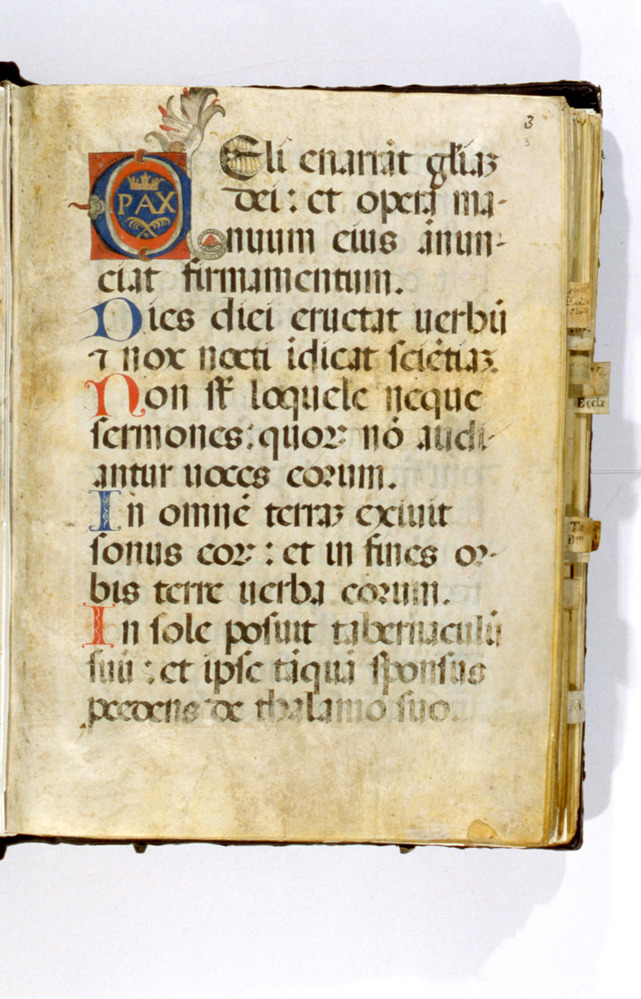 3
3
PAX
Celi enarrāt gl̄iaꝫ
dei : et opera ma-
nuum eius ānun-
ciat firmamentum.
Dies diei eructat uerbū
⁊ nox nocti īdicat sciētiaꝫ.
Non st̄ loquele neque
sermones : quoꝝ nō audi-
antur uoces eoꝛum.
In omnē terraꝫ exiuit
sonus eoꝝ : et in fines oꝛ-
bis terre uerba eoꝛum.
In sole posuit tabernaculū
suū : et ipse tāquā sponsus
ꝓcedens de thalamo suo.
Eccle